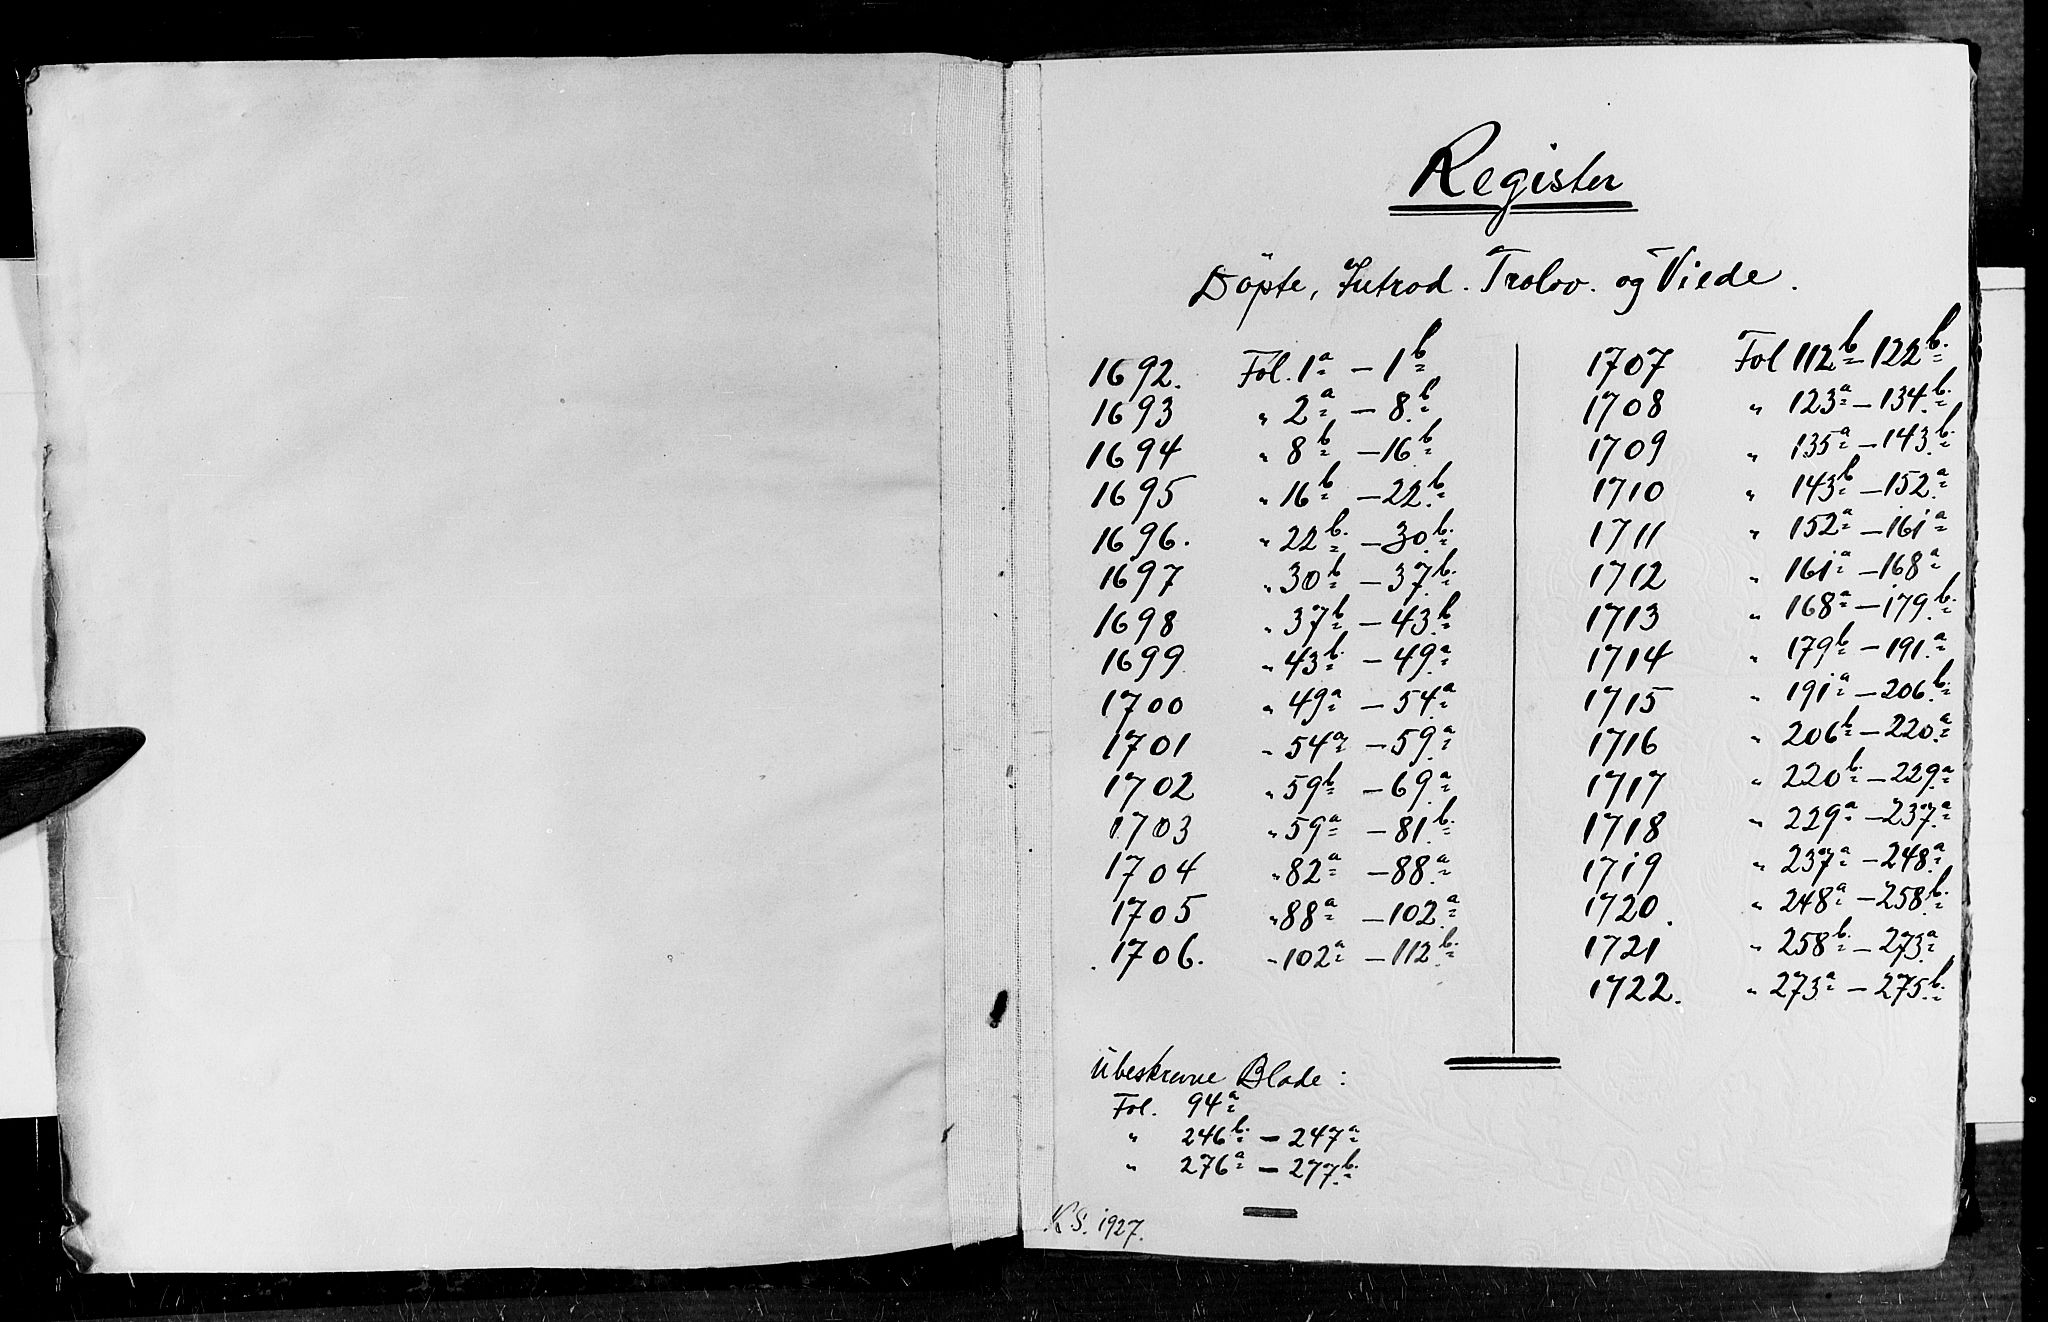 Register
Döpte, Introd. Trolov. og Viede.
1692. Fol. 1a – 1b
1693 " 2a – 8b
1694 " 8b – 16b
1695 " 16b – 22b
1696. " 22b. – 30b.
1697 " 30b – 37b.
1698 " 37b – 43b
1699 " 43b. – 49a
1700 " 49a – 54a
1701 " 54a – 59a
1702 " 59b – 69a
1703 " 59a – 81b.
1704 " 82a – 88a
1705 " 88a – 102a
1706. " 102a – 112b.
1707 Fol 112b – 122b.
1708 " 123a – 134b.
1709 " 135a – 143b.
1710 " 143b – 152a
1711 " 152a – 161a
1712 " 161a – 168a
1713 " 168a – 179b.
1714 " 179b – 191a
1715 " 191a – 206b.
1716 " 206b – 220a
1717 " 220b – 229a
1718 " 229a – 237a
1719 " 237a – 248a
1720. " 248a – 258b.
1721 " 258b. – 273a
1722. " 273a – 275b.
Ubeskrevne Blade:
Fol. 94a
" 246b. – 247a
" 276a – 277b.
K.S. 1927.